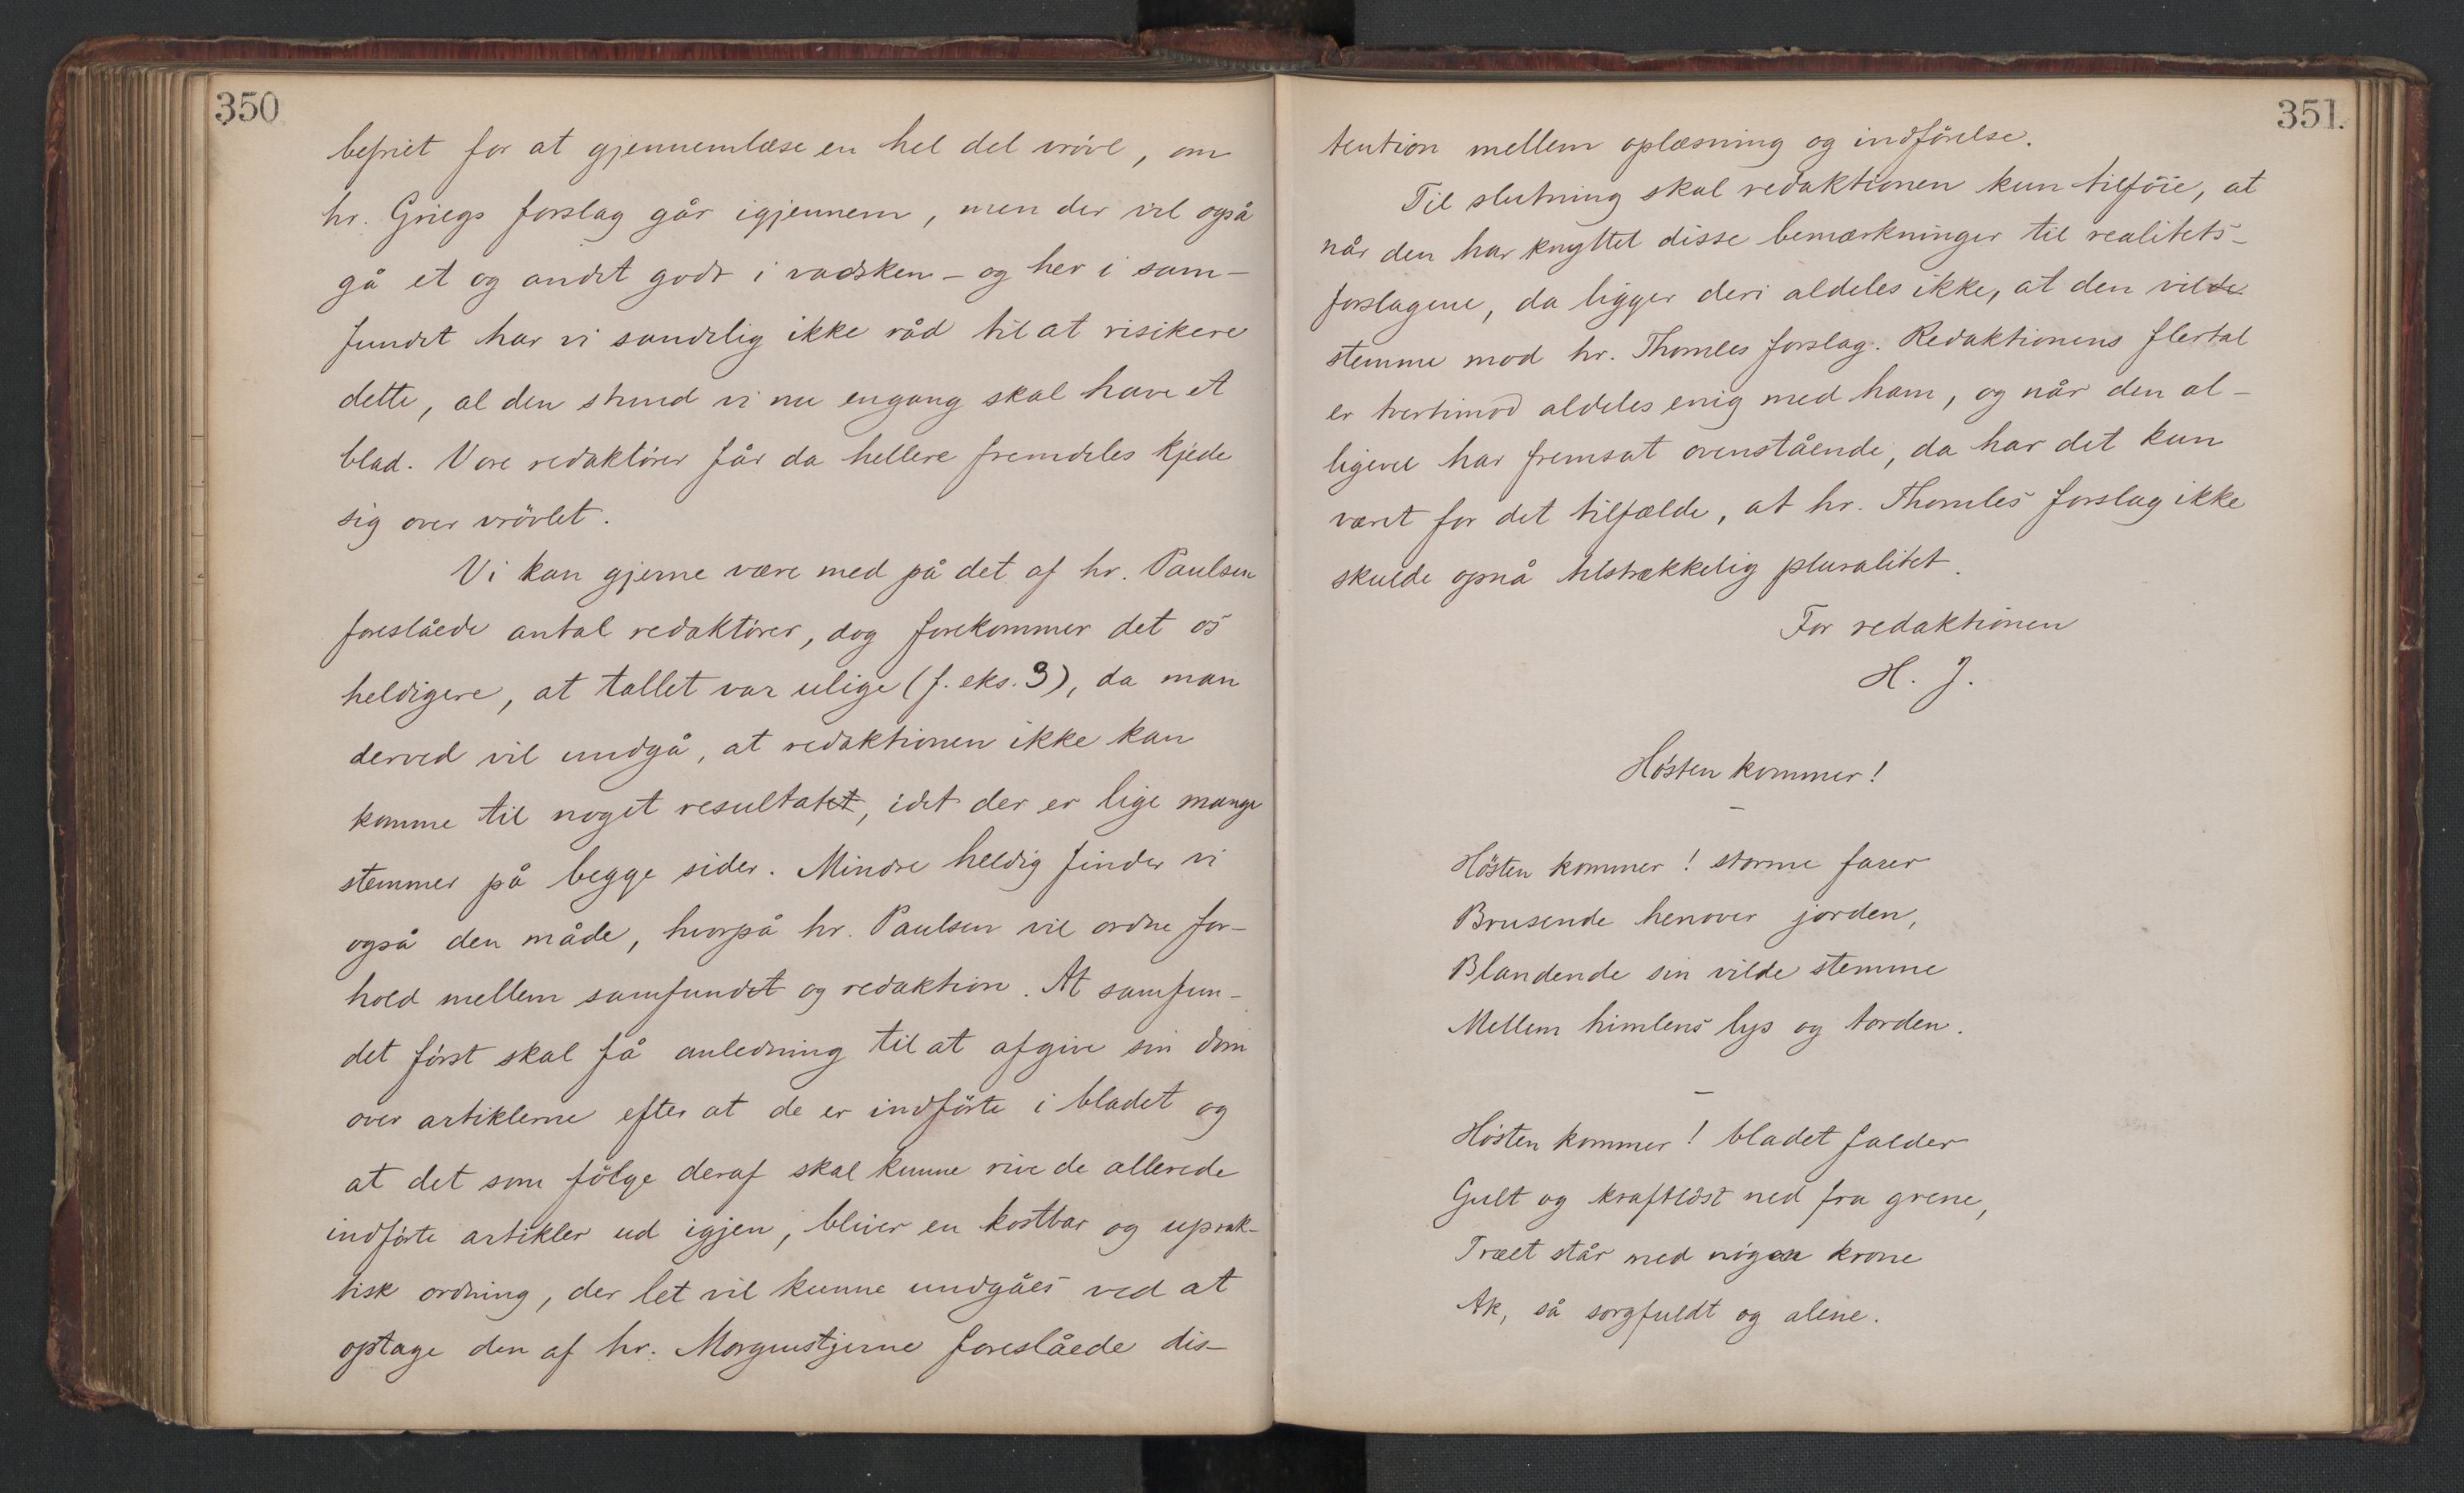 350
befriet for at gjennemlæse en hel del vrövl, om
hr. Griegs forslag går igjennem, men der vil også
gå et og andet godt i vadsken – og her i sam-
fundet har vi sandelig ikke råd til at risikere
dette, al den stund vi nu engang skal have et
blad. Vore redaktörer får da hellere fremdeles kjede
sig over vrövlet.
Vi kan gjerne være med på det af hr. Paulsen
foreslåede antal redaktörer, dog forekommer det os
heldigere, at tallet var ulige (f. eks. 3), da man
derved vil undgå, at redaktionen ikke kan
komme til noget resultatet, idet der er lige mange
stemmer på begge sider. Mindre heldig finder vi
også den måde, hvorpå hr. Paulsen vil ordne for-
hold mellem samfundet og redaktion. At samfun-
det först skal få anledning til at afgive sin dom
over artiklerne efter at de er indförte i bladet og
at det som fölge deraf skal kunne rive de allerede
indförte artikler ud igjen, bliver en kostbar og uprak-
tisk ordning, der let vil kunne undgåes ved at
optage den af hr. Morgenstjerne foreslåede dis-
351.
tention mellem oplæsning og indförelse.
Til slutning skal redaktionen kun tilföie, at
når den har knyttet disse bemærkninger til realitets-
forslagene, da ligger deri aldeles ikke, at den vilde
stemme mod hr. Thomles forslag. Redaktionens flertal
er tvertimod aldeles enig med ham, og når den al-
ligevel har fremsat ovenstående, da har det kun
været for det tilfælde, at hr. Thomles forslag ikke
skulde opnå tilstrækkelig pluralitet.
For redaktionen
H. J.
Hösten kommer!
–
Hösten kommer! storme farer
Brusende henover jorden,
Blandende sin vilde stemme
Mellem himlens lys og torden.
–
Hösten kommer! bladet falder
Gult og kraftlöst ned fra grene,
Træet står med nögen krone
Ak, så sorgfuldt og alene.